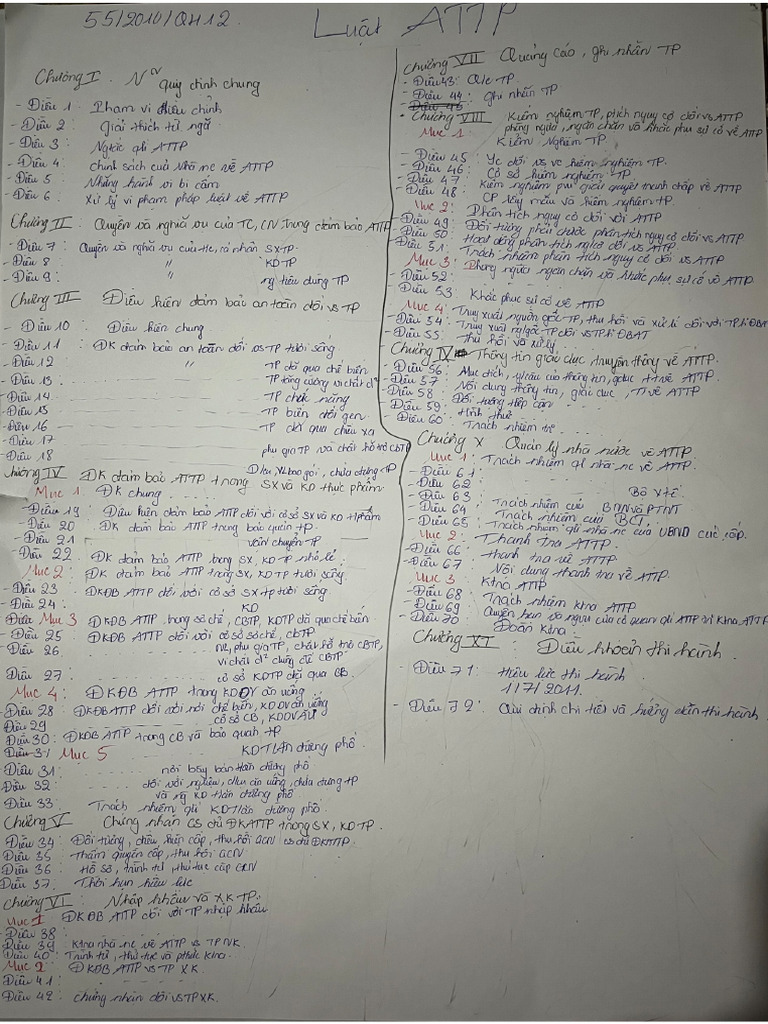 55/2010/QH12.
Luật ATTP
Chương I. N~ quy định chung
- Điều 1 : Phạm vi điều chỉnh
- Điều 2 : Giải thích từ ngữ
- Điều 3 : Ngtắc qlí ATTP
- Điều 4 : Chính sách của Nhà nc về ATTP
- Điều 5 : Những hành vi bị cấm
- Điều 6 : Xử lý vi phạm pháp luật về ATTP
Chương II : Quyền và nghĩa vụ của TC, CN trong đảm bảo ATTP
- Điều 7 : Quyền và nghĩa vụ của t/c, cá nhân SXTP
- Điều 8 : " KDTP
- Điều 9 : " ng tiêu dùng TP
Chương III : Điều kiện đảm bảo an toàn đối vs TP
- Điều 10 : Điều kiện chung
- Điều 11 : ĐK đảm bảo an toàn đối vs TP tươi sống
- Điều 12 " TP đã qua chế biến
- Điều 13 TP tăng cường vi chất d²
- Điều 14 TP chức năng
- Điều 15 TP biến đổi gen
- Điều 16 TP đã qua chiếu xạ
- Điều 17 phụ gia TP và chất hỗ trợ CBTP
- Điều 18 Dcụ, VL bao gói, chứa đựng TP
Chương IV ĐK đảm bảo ATTP trong SX và KD thực phẩm
Mục 1 ĐK chung
- Điều 19 : Điều kiện đảm bảo ATTP đối với cơ sở SX và KD t.phẩm
- Điều 20 ĐK đảm bảo ATTP trong bảo quản tp
- Điều 21 vận chuyển TP
- Điều 22 . ĐK đảm bảo ATTP trong SX, KD TP nhỏ lẻ
Mục 2 : ĐK đảm bảo ATTP trong SX, KD TP tươi sống
- Điều 23 ĐKĐB ATTP đối với cơ sở SX tp tươi sống
- Điều 24 : KD
Mục 3 ĐKĐB ATTP trong sơ chế, CBTP, KDTP đã qua chế biến
- Điều 25 : ĐKĐB ATTP đối với cơ sở sơ chế, CBTP
- Điều 26 . NL, phụ gia TP, chất hỗ trợ CBTP,
vi chất d² dùng để CBTP
Điều 27 cơ sở KDTP đã qua CB.
Mục 4 : ĐKĐB ATTP trong KDDV ăn uống
- Điều 28 : ĐKĐB ATTP đối với nơi chế biến, KDDV ăn uống
- Điều 29 : cơ sở CB, KDDV ĂU
- Điều 30 : ĐKĐB ATTP trong CB và bảo quản tp
Mục 5 KDTĂ đường phố
- Điều 31 : nơi bày bán tăn đường phố
- Điều 32 : đối với ngliệu, dcụ ăn uống, chứa đựng tp
và ng KD tăn đường phố
- Điều 33 . Trách nhiệm qlí KD tăn đường phố
Chương V Chứng nhận CS đủ ĐKATTP trong SX, KDTP
- Điều 34 : Đối tượng, điều kiện cấp, thu hồi GCN cs đủ ĐKATTP
- Điều 35 Thẩm quyền cấp, thu hồi GCN
- Điều 36 : Hồ sơ, trình tự thủ tục cấp GCN
- Điều 37. Thời hạn hiệu lực
Chương VI : Nhập khẩu và XK TP.
Mục 1 ĐKĐB ATTP đối với TP nhập khẩu
- Điều 38 :
- Điều 39 Ktra nhà nc về ATTP vs TP NK.
- Điều 40 : Trình tự, thủ tục và pthức ktra.
Mục 2 : ĐKĐB ATTP vs TP XK.
- Điều 41 .
- Điều 42 : chứng nhận đối vs TP XK.
Chương VII Quảng cáo, ghi nhãn TP
- Điều 43 : Qlc TP.
- Điều 44 : Ghi nhãn TP
- Chương VIII : Kiểm nghiệm TP, ptích nguy cơ đối vs ATTP
phòng ngừa, ngăn chặn và khắc phục sự cố về ATTP
Mục 1 Kiểm Nghiệm TP.
- Điều 45 : Yc đối vs vc kiểm nghiệm TP.
- Điều 46 : Cơ sở kiểm nghiệm TP.
- Điều 47 : Kiểm nghiệm pvụ giải quyết tranh chấp về ATTP
- Điều 48 : CP lấy mẫu và kiểm nghiệm tp.
Mục 2 : Phân tích nguy cơ đối với ATTP
- Điều 49 : Đối tượng phải được phân tích nguy cơ đối vs ATTP.
- Điều 50 : Hoạt động phân tích ngcơ đối vs ATTP
- Điều 51 : Trách nhiệm phân tích nguy cơ đối vs ATTP
Mục 3 : Phòng ngừa ngăn chặn và khắc phục sự cố về ATTP
- Điều 52 :
- Điều 53 Khắc phục sự cố về ATTP
Mục 4 Truy xuất nguồn gốc TP, thu hồi và xử lí đối với TP k ĐBAT
- Điều 54 : Truy xuất nggốc TP đối vs TP k ĐBAT
- Điều 55 : Thu hồi và xử lý
Chương IX Thông tin giáo dục truyền thông về ATTP.
- Điều 56 : Mục đích, ycầu của thông tin, gdục tt về ATTP.
- Điều 57 : Nội dung thông tin, giáo dục, TT về ATTP
- Điều 58 : Đối tượng tiếp cận
- Điều 59 : Hình thức
- Điều 60 : Trách nhiệm
Chương X Quản lý nhà nước về ATTP.
Mục 1 : Trách nhiệm ql nhà nc về ATTP.
- Điều 61 :
- Điều 62 : Bộ Y tế.
- Điều 63 : Trách nhiệm của BNN và PTNT
- Điều 64 : Trách nhiệm của BCT.
- Điều 65 : Trách nhiệm ql nhà nc của UBND các cấp.
Mục 2 : Thanh tra ATTP.
- Điều 66 : thanh tra về ATTP
- Điều 67 : Nội dung thanh tra về ATTP.
Mục 3 Ktra ATTP.
- Điều 68 : Trách nhiệm ktra ATTP
- Điều 69 : Quyền hạn và ngvụ của cơ quan qlí ATTP vì ktra ATTP
- Điều 70 Đoàn ktra
Chương XI : Điều khoản thi hành.
- Điều 71 : Hiệu lực thi hành
1/7/2011.
- Điều 72 : Qui định chi tiết và hướng dẫn thi hành